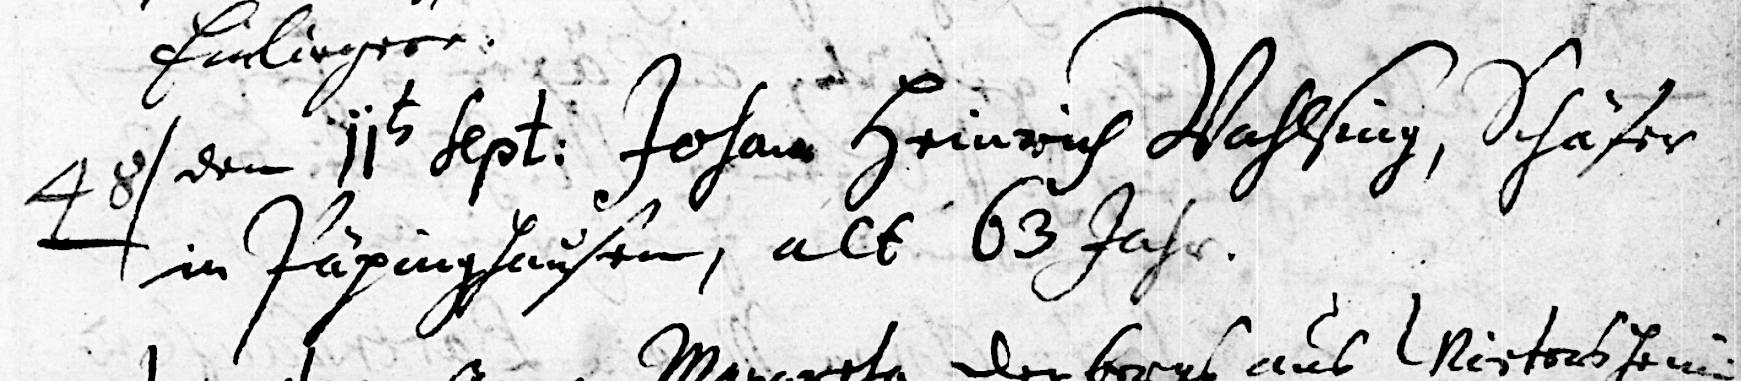 Einlieger.
48/ den 11t Sept: Johan Heinrich Wahlsing, Schäfer
in Päpinghausen, alt 63 Jahr.
Margreta aus